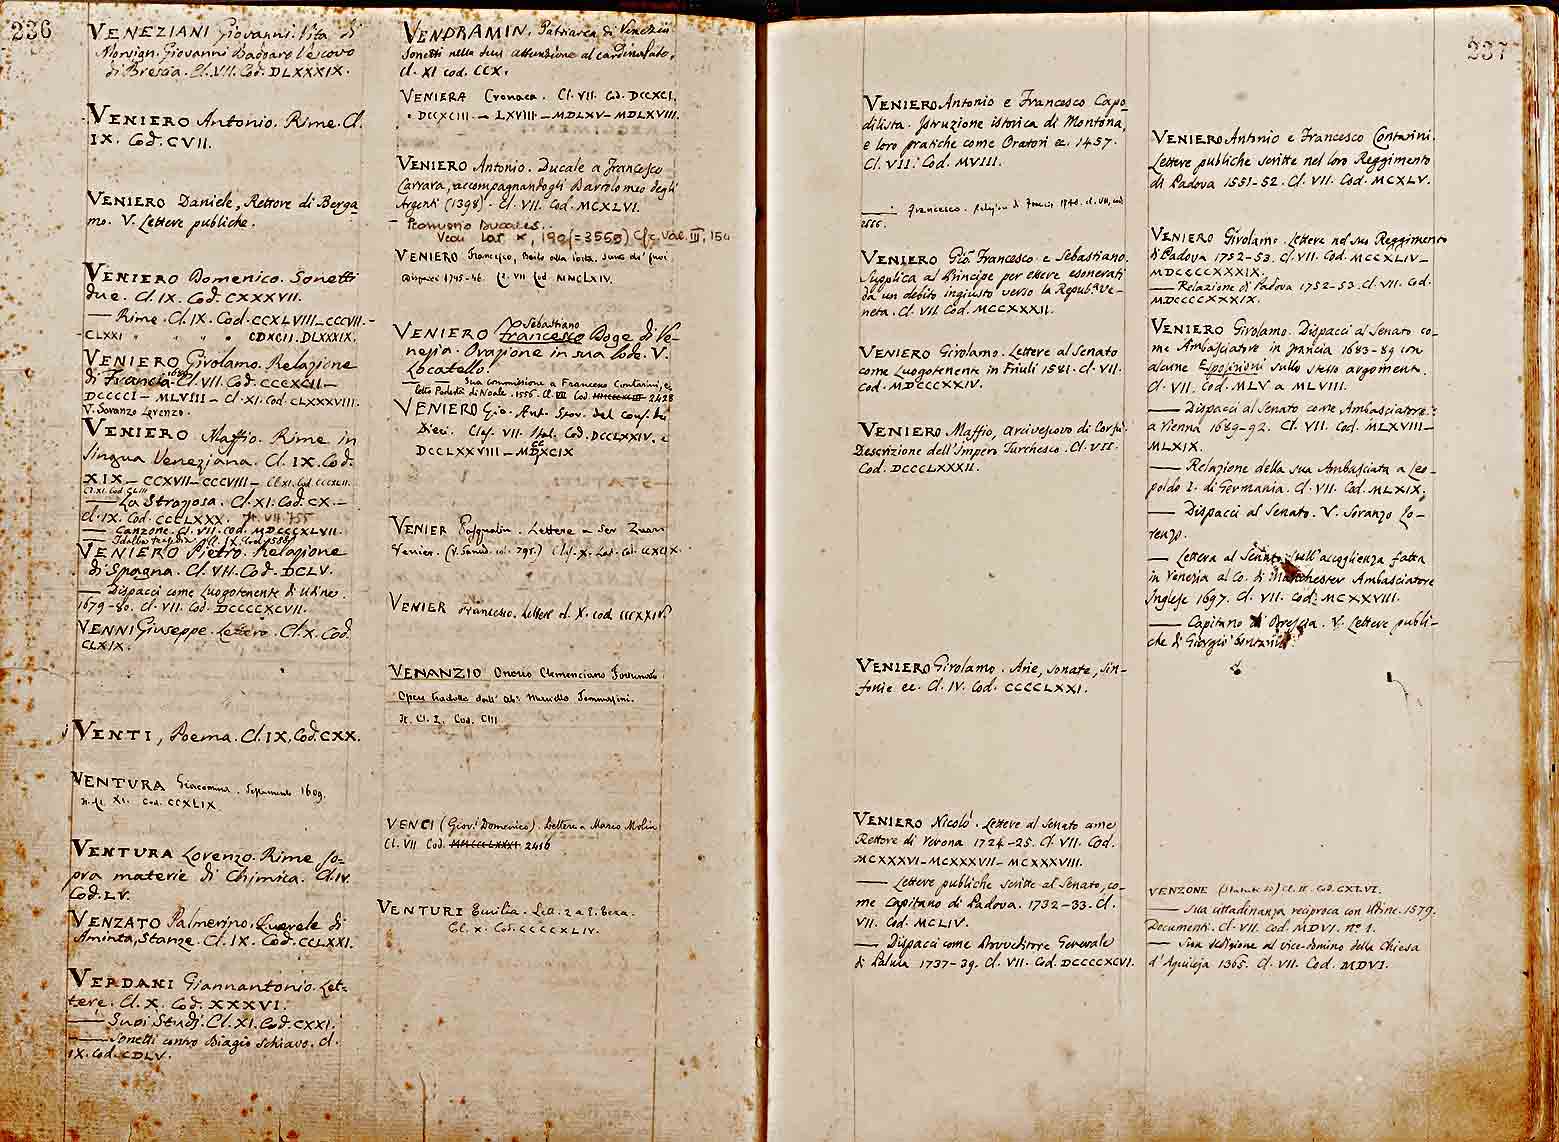 236
VENEZIANI Giovanni. Vita di
Monsign. Giovanni Badoaro Vescovo
di Brescia. Cl. VII. Cod. DLXXXIX.
VENIERO Antonio. Rime. Cl.
IX. Cod. CVII.
VENIERO Daniele, Rettore di Berga-
mo. V. Lettere publiche.
VENIERO Domenico. Sonetti
due. Cl. IX. Cod. CXXXVII.
— Rime. Cl. IX. Cod. CCXLVIII_CCCVII.-
CLXXI " " " " CDXCII. DLXXXIX.
VENIERO Girolamo. Relazione
di Francia 1689 Cl. VII. Cod. CCCXCII—
DCCCCI — MLVIII — Cl. XI. Cod. CLXXXVIII.
V. Soranzo Lorenzo.
VENIERO Maffio. Rime in
lingua Veneziana. Cl. IX. Cod.
XIX — CCXVII — CCCVIII —
— La Strazzosa. Cl. XI. Cod. CX. —
Cl. IX. Cod. CCCLXXX. It. VII. 755
— Canzone. Cl. VII. Cod. MDCCCXLVII.
— Idalba tragedia Cl. IX. Cod.
VENIERO Pietro. Relazione
di Spagna. Cl. VII. Cod. DCLV.
— Dispacci come Luogotenente di Udine.
1679-80. Cl. VII. Cod. DCCCCXCVII.
VENNI Giuseppe. Lettera. Cl. X. Cod.
CLXIX.
VENTI, Poema. Cl. IX. Cod. CXX.
VENTURA Giacomina. 1609.
It. Cl. XI. Cod. CCXLIX
VENTURA Lorenzo. Rime so-
pra materie di Chimica. Cl. IV.
Cod. LV.
VENZATO Palmerino. Querele di
Aminta, Stanze. Cl. IX. Cod. CCLXXI.
VERDANI Giannantonio. Let-
tere. Cl. X. Cod. XXXVI.
— Suoi Studi. Cl. XI. Cod. CXXI.
— Sonetti contro Biagio Schiavo. Cl.
IX. Cod. CDLV.
VENDRAMIN, Patriarca di Venezia
Sonetti nella sua assunzione al cardinalato.
Cl. XI cod. CCX.
VENIERA Cronaca. Cl. VII. Cod. DCCXCI.
" DCCXCIII — LXVIII — MDLXV — MDLXVIII.
VENIERO Antonio. Ducale a Francesco
Carrara, accompagnandogli Bartolomeo degli
Argenti (1398). Cl. VII. Cod. MCXLVI.
— Ducales.
Vedi Lat. X, 190 (=3550) Cfr. Val. III, 150
VENIERO Francesco, Bailo alla Porta.
Dispacci 1745-46. Cl. VII Cod MMCLXIV.
VENIERO Francesco Sebastiano Doge di Ve-
nezia. Orazione in sua lode. V.
Locatello.
— — Sua commissione a Francesco Contarini, e-
letto Podestà di Noale. 1556. Cl. VII Cod. 2428
VENIERO Gio. Ant. Stor. del cons. di
Dieci. Clas. VII. Ital. Cod. DCCLXXIV. e
DCCLXXVIII — MDCCXCIX
VENIER Pasqualin. Lettere a Ser Zuan
Venier. (V. Sanud. vol. 795.) Clas. X. Lat. Cod. CCXCIX.
VENIER Francesco. Lettere cl. X. cod CCCXXIV.
VENANZIO Onorio Clemenziano Fortunato
Opera tradotta dall' Ab. Marcello Tommasini.
It. Cl. I. Cod. CIII
VENCI (Giov. Domenico). Lettera a Marco Molin
Cl. VII Cod. 2416
VENTURI Emilia. Lett. 2 a
Cl. X. Cod. CCCCXLIV.
237
VENIERO Antonio e Francesco Capo-
dilista. Istruzione istorica di Montona,
e loro pratiche come Oratori ec. 1457.
Cl. VII. Cod. MVIII.
— Francesco. Relazione di 1740. Cl. VII, cod
VENIERO Gio. Francesco e Sebastiano.
Supplica al Principe per essere esonerati
da un debito ingiusto verso la Repub.a Ve-
neta. Cl. VII. Cod. MCCXXXII.
VENIERO Girolamo. Lettere al Senato
come Luogotenente in Friuli 1581. Cl. VII.
Cod. MDCCCXXIV.
VENIERO Maffio, arcivescovo di Corfù.
Descrizione dell'Impero Turchesco. Cl. VII.
Cod. DCCCLXXXII.
VENIERO Girolamo. Arie, sonate, sin-
fonie ec. Cl. IV. Cod. CCCCLXXI.
VENIERO Nicolò. Lettere al Senato come
Rettore di Verona 1724-25. Cl. VII. Cod.
MCXXXVI—MCXXXVII—MCXXXVIII.
— Lettere publiche scritte al Senato, co-
me Capitano di Padova. 1732-33. Cl.
VII. Cod. MCLIV.
— Dispacci come Provveditore Generale
di Palma 1737-39. Cl. VII. Cod. DCCCCXCVI.
VENIERO Antonio e Francesco Contarini.
Lettere publiche scritte nel loro Reggimento
di Padova 1551-52. Cl. VII. Cod. MCXLV.
VENIERO Girolamo. Lettere nel suo Reggimento
di Padova 1752-53. Cl. VII. Cod. MCCXLIV—
MDCCCCXXXIX.
— Relazione di Padova 1752-53. Cl. VII. Cod.
MDCCCCXXXIX.
VENIERO Girolamo. Dispacci al Senato co-
me Ambasciatore in Francia 1683-89 con
alcune Esposizioni sullo stesso argomento.
Cl. VII. Cod. MLV a MLVIII.
— Dispacci al Senato come Ambasciatore
a Vienna 1689-92. Cl. VII. Cod. MLXVIII—
MLXIX.
— Relazione della sua Ambasciata a Leo-
poldo I. di Germania. Cl. VII. Cod. MLXIX.
— Dispacci al Senato. V. Soranzo Lo-
renzo.
— Lettera al Senato sull'accoglienza fatta
in Venezia al Co. di Manchester Ambasciatore
Inglese 1697. Cl. VII. Cod. MCXXVIII.
— Capitano di Brescia. V. Lettere publi-
che di Giorgio Contarini.
VENZONE (Statuto di) Cl. II. Cod. CXLVI.
— Sua cittadinanza reciproca con Udine. 1579.
Documenti. Cl. VII. Cod. MDVI. n.o 1.
— Sua dedizione al vice-domino della Chiesa
d'Aquileja 1365. Cl. VII. Cod. MDVI.